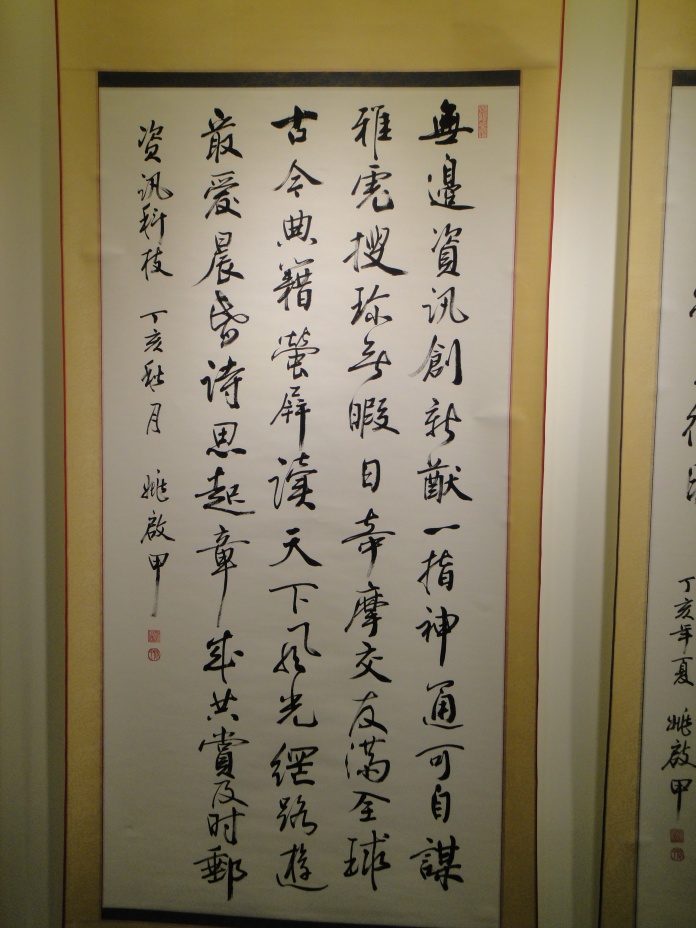 無邊資訊創新猷一指神通可自謀
雅虎搜珍無暇日奇摩交友滿全球
古今典籍螢屏讀天下風光網路遊
最愛晨昏詩思起章成共賞及时郵
資訊科技 丁亥秋月 姚啟甲
丁亥年夏 姚啟甲